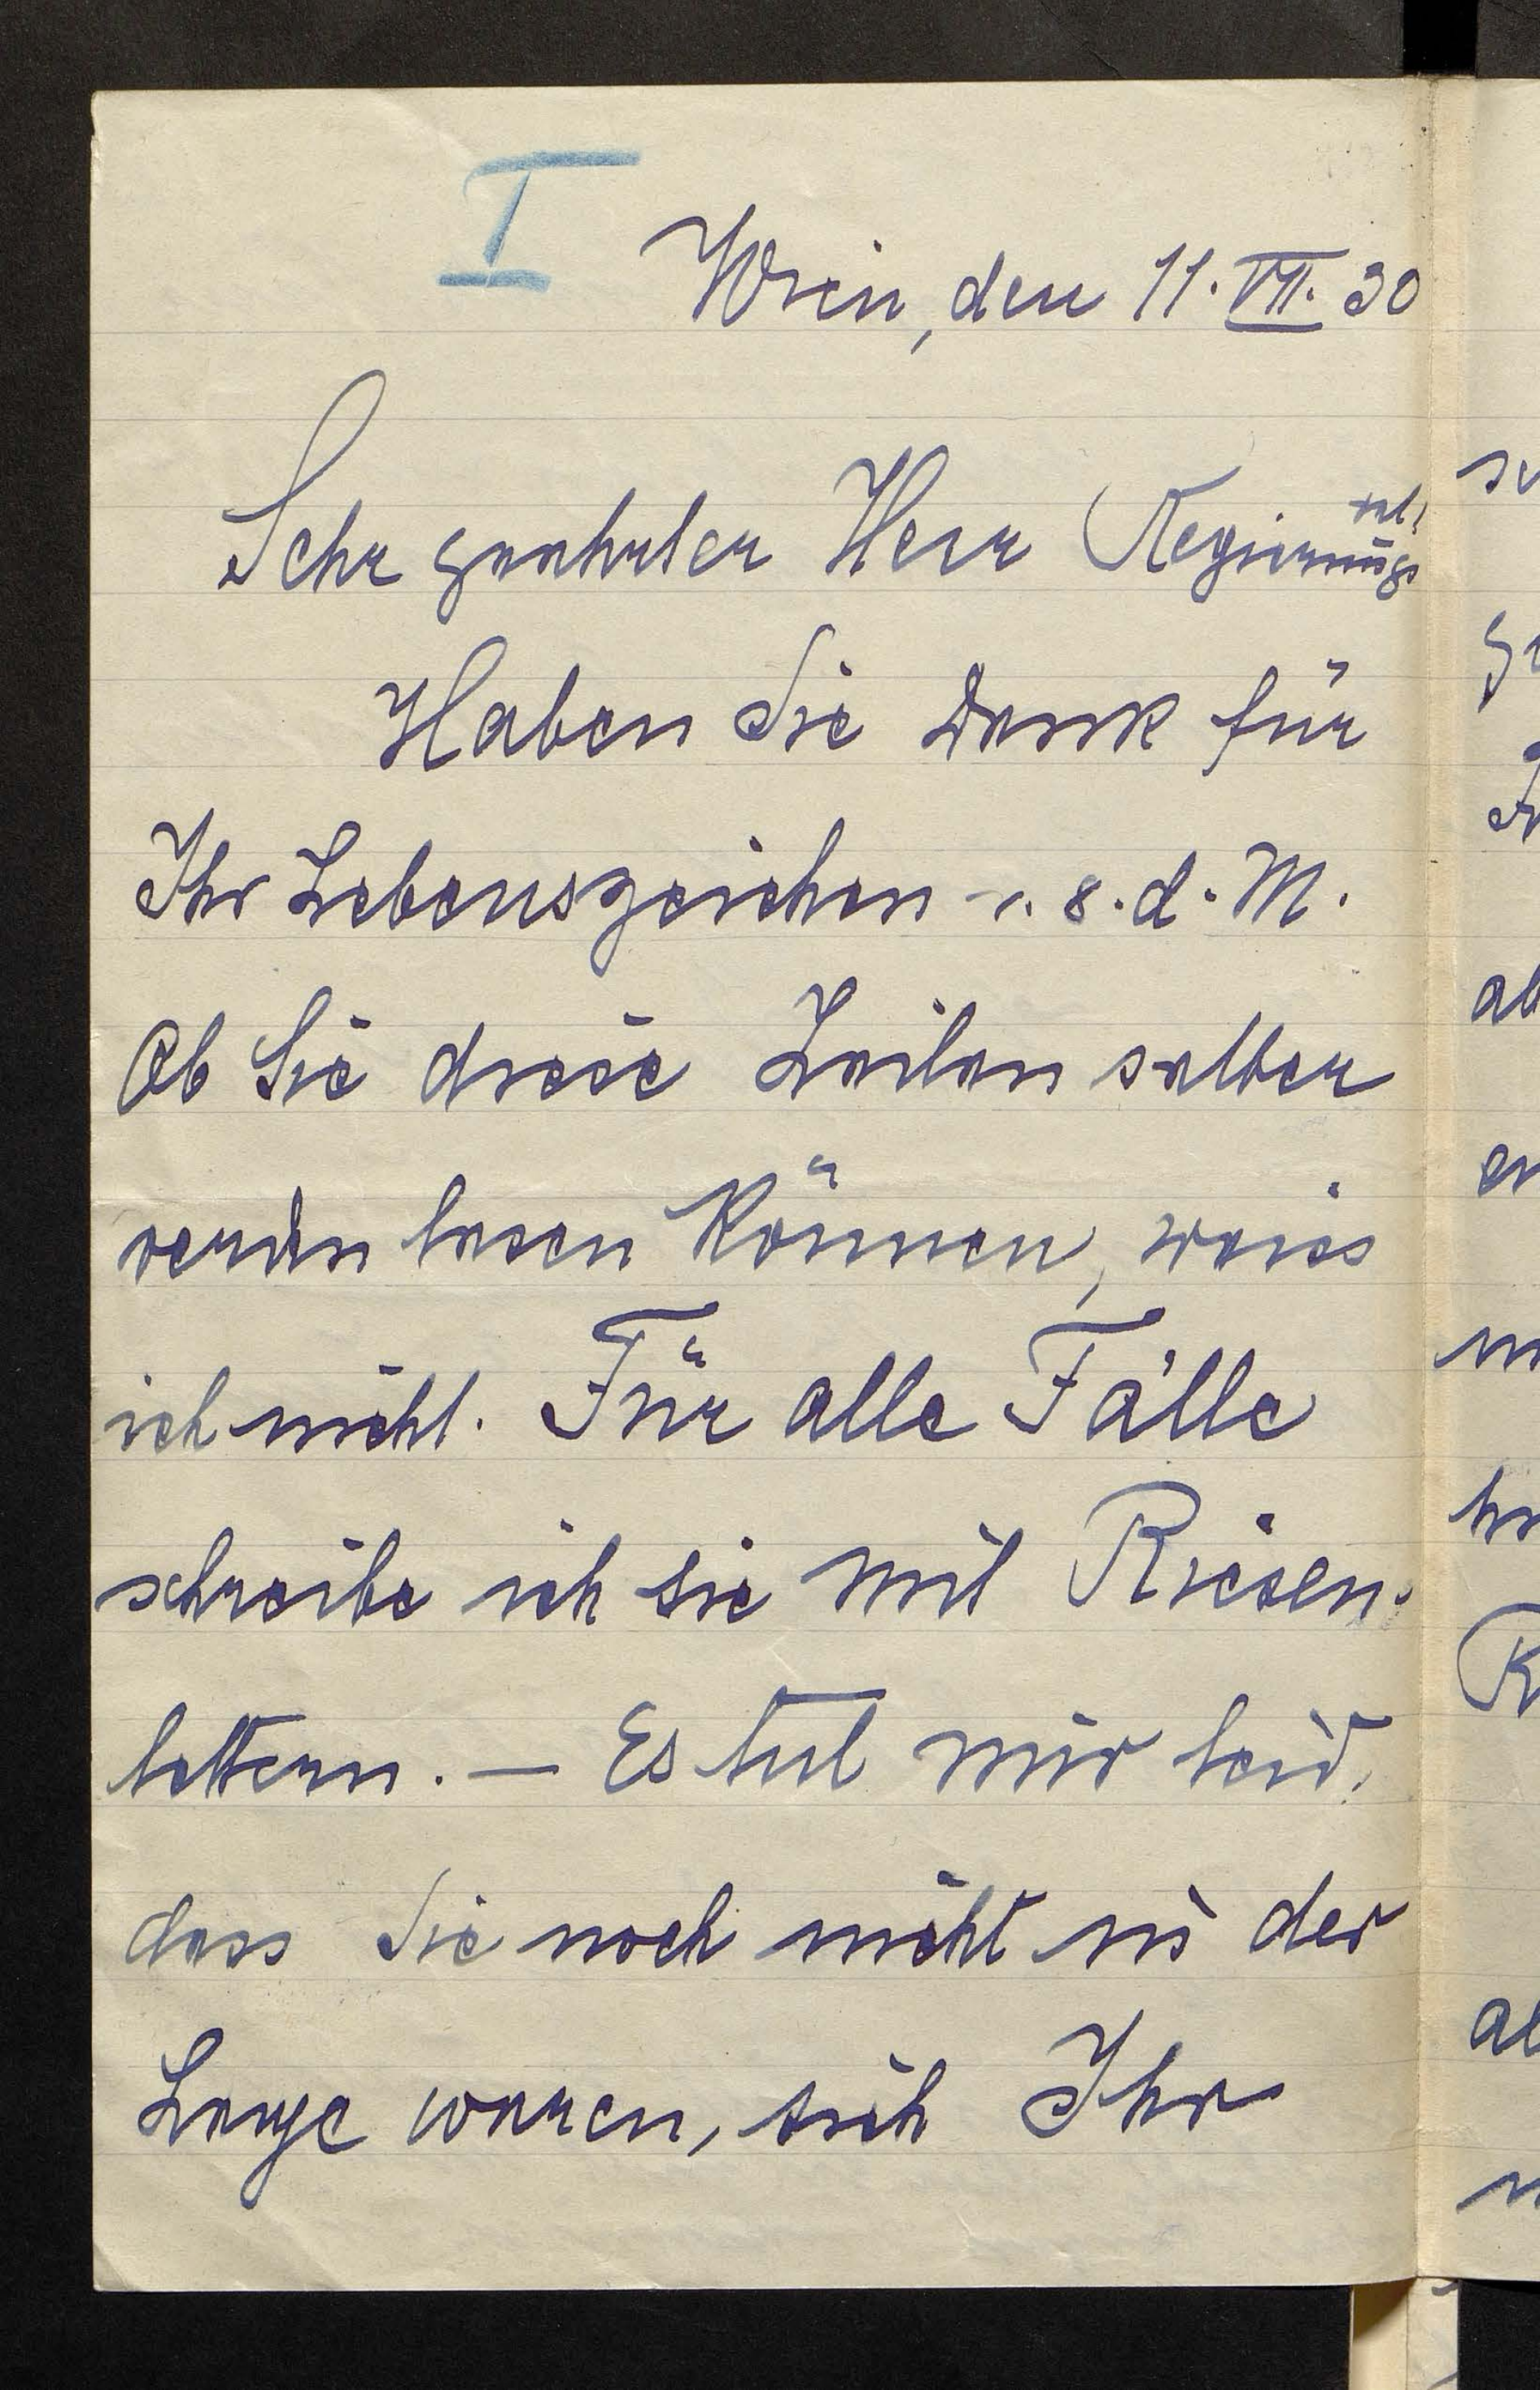 I
Wien, den 11. VII. 30
Sehr geehrter Herr Regierungsrat!
Haben Sie Dank für
Ihr Lebenszeichen v. 8. d. M.
Ob Sie diese Zeilen selber
werden lesen können, weiss
ich nicht. Für alle Fälle
schreibe ich sie mit Riesen-
lettern. — Es tut mir leid,
dass Sie noch nicht in der
Lage waren, sich Ihr